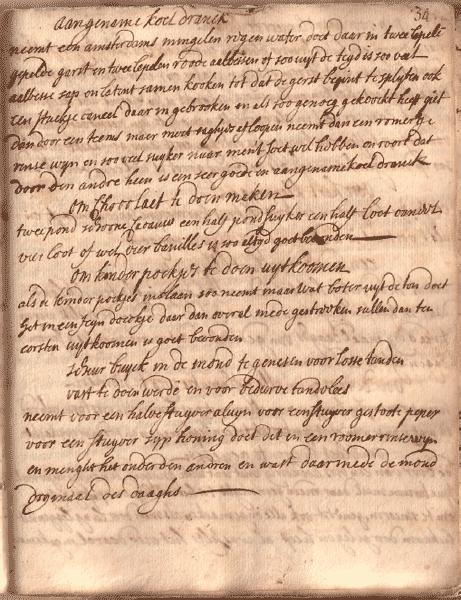 34
aangename koel dranck
neemt een amsterdams mingelen regen water doet daer in twee lepels
gepelde garst en twee lepelen roode aelbessen of soo uyt de teyd is soo veel
aelbesse sap en laet samen kooken tot dat de gerst begint te splyten ook
een stuckje caneel daer in gebrooken en als soo genoeg gekookt heeft giet
dan door een teems maer moet sagtjes loopen neemt dan een romertje
rense wyn en soo veel suyker naer men't soet wil hebben en voort dat
door den andre heen is een seer goede en aangename koel dranck
om Chocolaet te doen maken
twee pond schoone cacauws een half pond suyker een half loot canneel
vier loot of wel vier banilles is soo altyd goet bevonden
om kinder pockjes te doen uytkoomen
als de kinder pockjes inslaen soo neemt maer wat boter uyt de ton doet
het in een fyn doeckje daer dan overal mede gestreeken sullen dan ten
eersten uytkoomen is goet bevonden
scheur buyck in de mond te genesen voor losse tanden
vast te doen werde en voor bedurve tandvlees
neemt voor een halve stuyver aluyn voor een stuyver gestoote peper
voor een stuyver zyp honing doet dit in een roomer rinse wyn
en menght het onder den andren en wast daer mede de mond
drymaal des daaghs